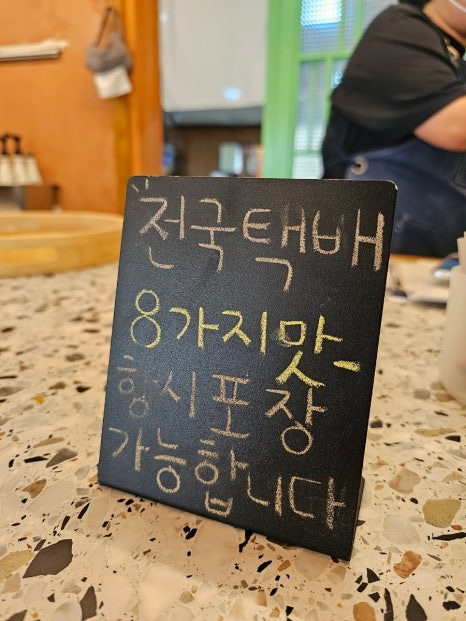 전국택배
8가지맛
항시포장
가능합니다